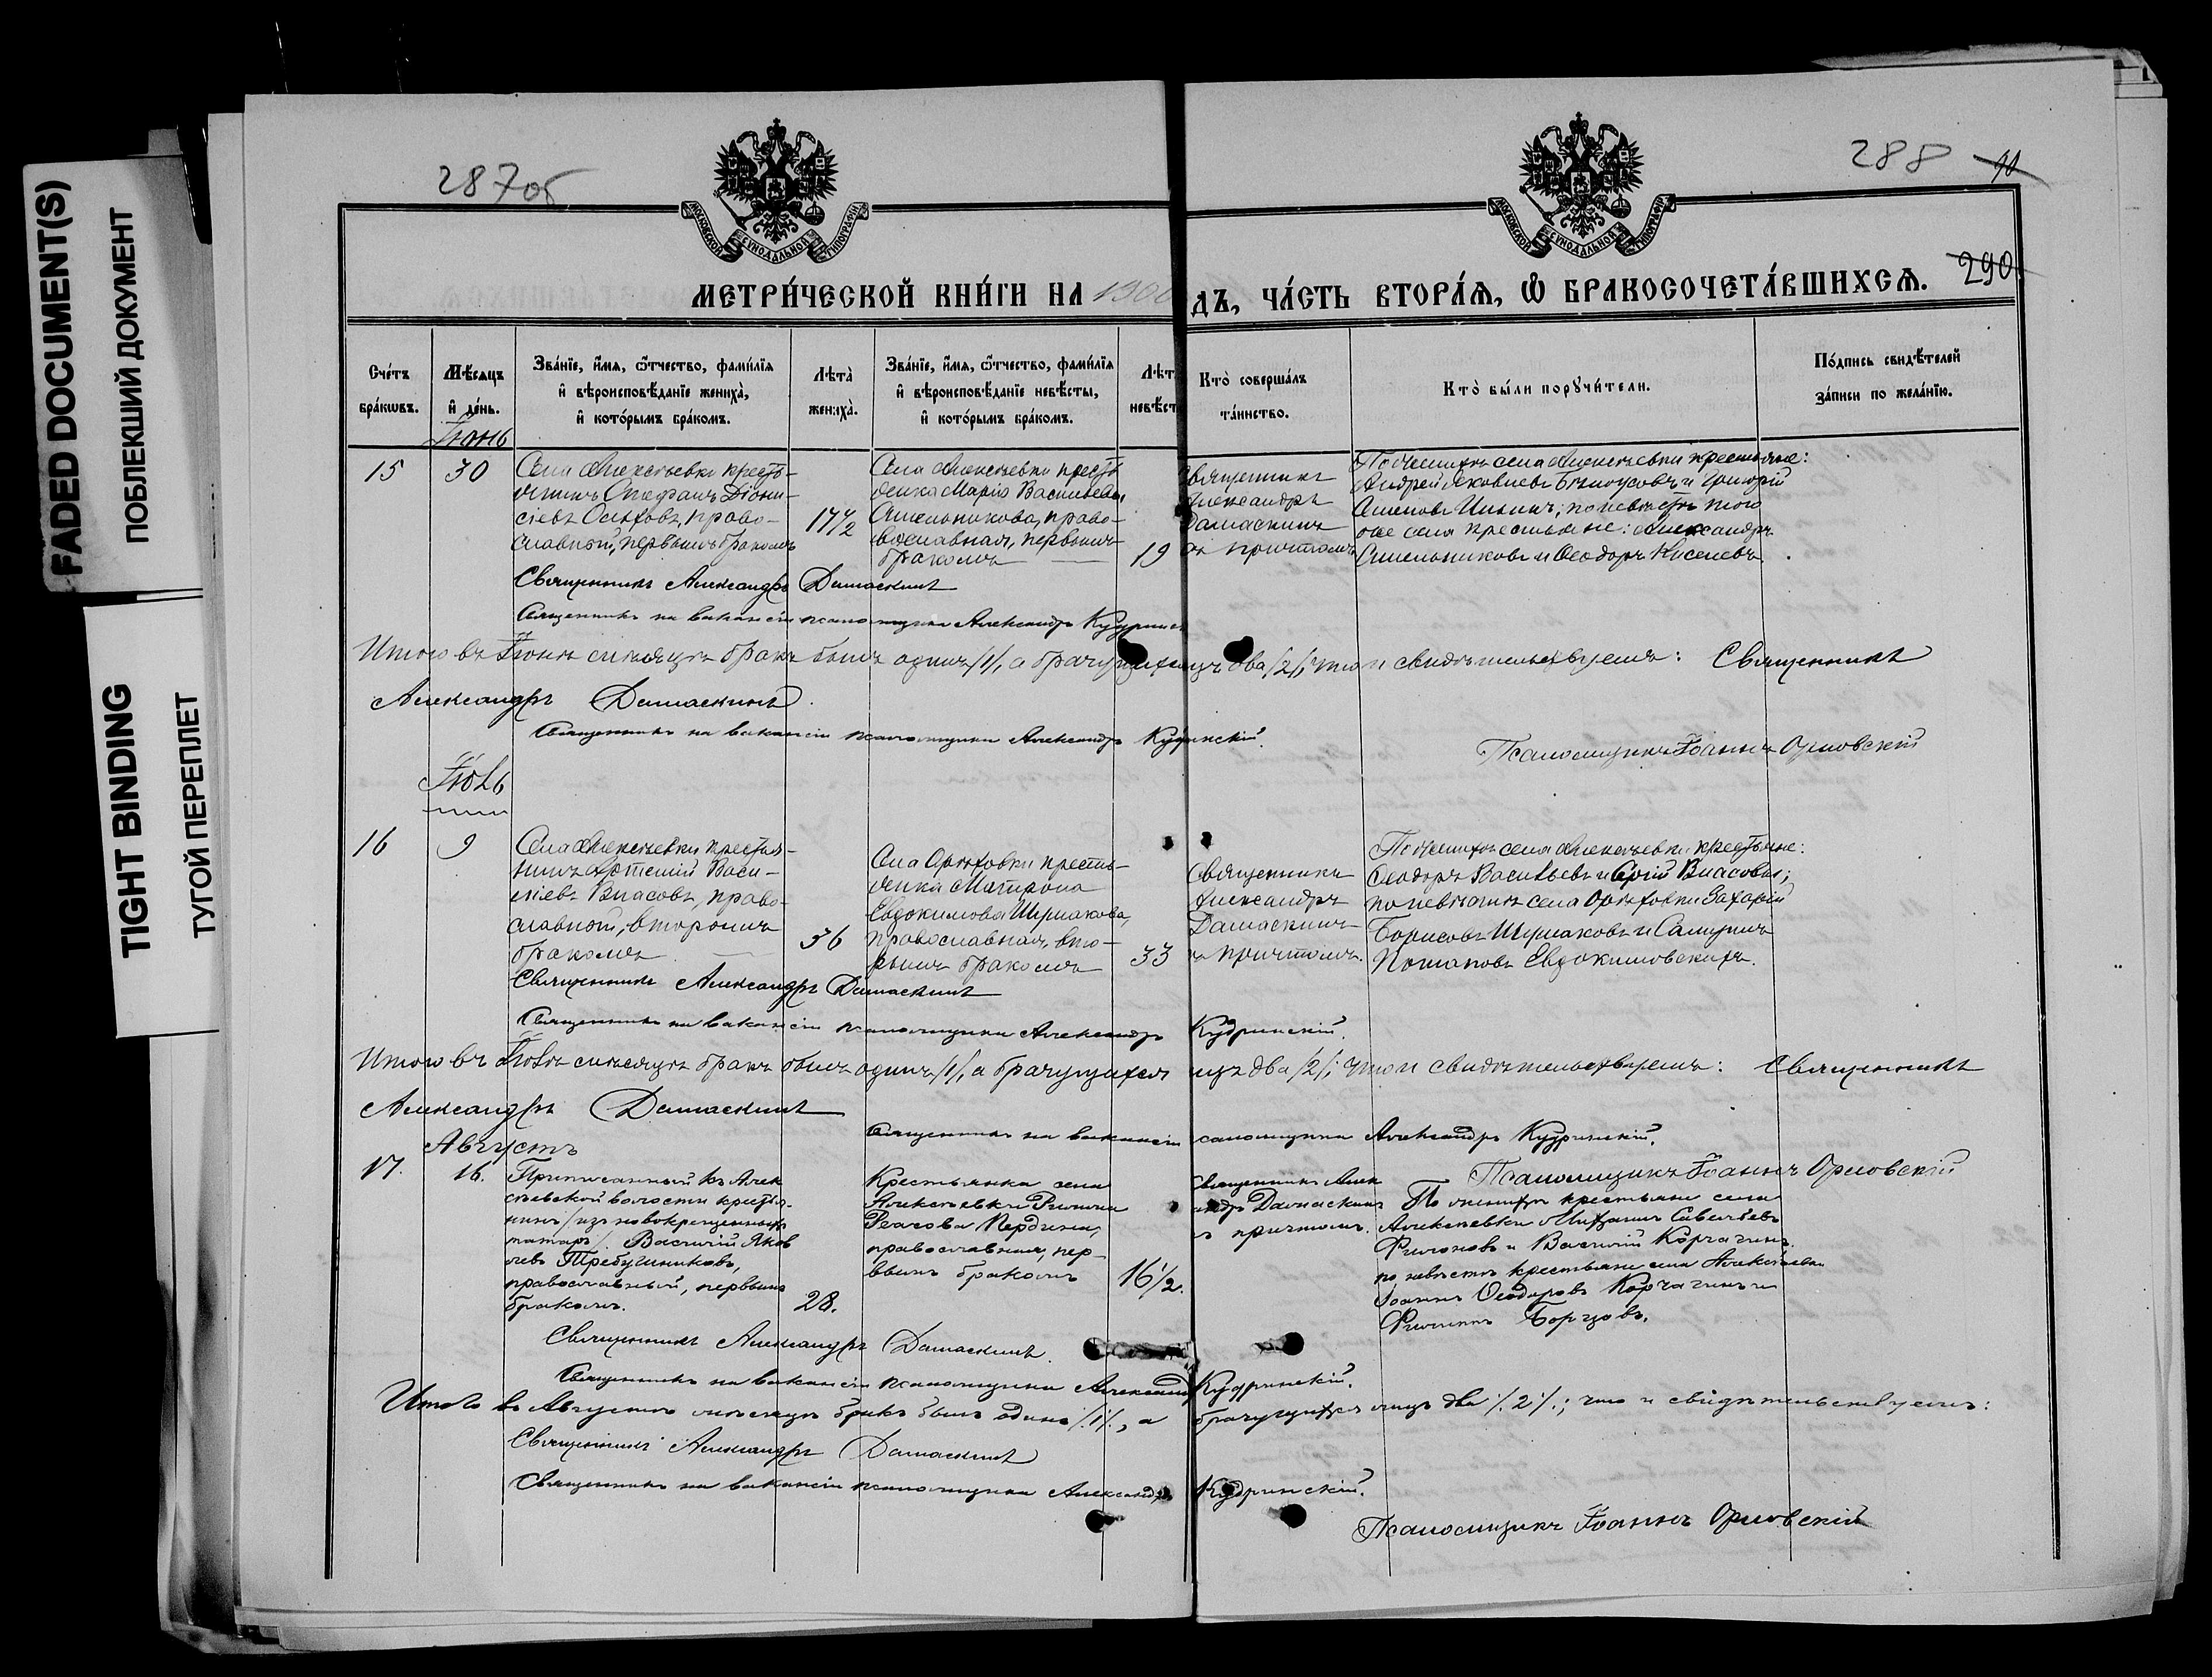 FADED DOCUMENT(S)
ПОБЛЕКШИЙ ДОКУМЕНТ
TIGHT BINDING
ТУГОЙ ПЕРЕПЛЕТ
287об
288
290
МОСКОВСКОЙ СѴНОДАЛЬНОЙ ТИПОГРАФІИ
МОСКОВСКОЙ СѴНОДАЛЬНОЙ ТИПОГРАФІИ
МЕТРИ́ЧЕСКОЙ КНИ́ГИ НА 1900
ДЪ, ЧА́СТЬ ВТОРА́Ѧ, Ѽ БРАКОСОЧЕТА́ВШИХСѦ.
Сче́тъ бра́кѡвъ.
Мѣ́сяцъ и҆ де́нь.
Зва́нїе, и҆́мя, ѻ҆́тчество, фами́лїя и҆ вѣроисповѣ́данїе жениха̀, и҆ кото́рымъ бра́комъ.
Лѣта̀ жениха̀.
Зва́нїе, и҆́мя, ѻ҆́тчество, фами́лїя и҆ вѣроисповѣ́данїе невѣ́сты, и҆ кото́рымъ бра́комъ.
Лѣт невѣст
Кто̀ соверша́лъ та́инство.
Кто̀ бы́ли порꙋчи́тели.
По́дпись свидѣ́телей за́писи по жела́нїю.
Іюнь
15
30
Села Алексѣевки кресть-
янинъ Стефанъ Діони-
сіевъ Осиповъ, право-
славной, первымъ бракомъ
17½
Села Алексѣевки кресть
янка Марія Васильева
Амельникова, право-
вославная, первымъ
бракомъ
19
вященникъ
Александръ
Дамаскинъ
съ причтомъ
По женихѣ села Алексѣевки крестьяне:
Андрей Яковлевъ Бѣлоусовъ и Григорій
по невѣстѣ того
же села крестьяне: Александръ
Амельниковъ и Ѳеодоръ Киселевъ.
Священникъ Александръ Дамаскинъ
Священникъ на вакансіи псаломщика Александръ Кудринск
Итого въ Іюнѣ мѣсяцѣ бракъ былъ одинъ /1/, а брачущихся лицъ два /2/; что и свидѣтельствуемъ: Священникъ
Александръ Дамаскинъ.
Священникъ на вакансіи псаломщика Александръ Кудринскій.
Псаломщикъ Іоаннъ Орловскій
Іюль
16
9
Села Алексѣевки крестья-
нинъ Артемій Васи-
ліевъ Власовъ, право-
славной, вторымъ
бракомъ
36
Села Орѣховки кресть-
янка Матрона
Евдокимова Шумакова,
православная, вто-
рымъ бракомъ
33
Священникъ
Александръ
Дамаскинъ
съ причтомъ.
По женихѣ села Алексѣевки крестьяне:
Ѳеодоръ Васильевъ и Сергій Власовы;
по невѣстѣ села Орѣховки Захарій
Борисовъ Шумаковъ и Самуилъ
Потаповъ Евдокимовскихъ.
Священникъ Александръ Дамаскинъ
Священникъ на вакансіи псаломщика Александръ Кудринскій.
Итого въ Іюлѣ мѣсяцѣ бракъ былъ одинъ /1/, а брачущихся лицъ два /2/; что и свидѣтельствуемъ: Священникъ
Александръ Дамаскинъ
Священникъ на вакансіи псаломщика Александръ Кудринскій.
Псаломщикъ Іоаннъ Орловскій
Августъ
17.
16.
Приписанный къ Алек
сѣевской волости крестья-
нинъ /изъ новокрещенныхъ
татаръ/. Василій Яков
левъ Требушниковъ,
православный, первымъ
бракомъ.
28.
Крестьянка села
Алексѣевки
православная, пер-
вымъ бракомъ
16½.
Священникъ Алек
андръ Дамаскинъ
съ причтомъ.
По женихѣ крестьяне села
Алексѣевки Михаилъ Савельевъ
Филоновъ и Василій Корчагинъ.
по невѣстѣ крестьяне села Алексѣевки
Іоаннъ Ѳеодоровъ Корчагинъ и
Филиппъ Борзовъ.
Священникъ Александръ Дамаскинъ.
Священникъ на вакансіи псаломщика Александръ Кудринскій.
Итого въ Августѣ мѣсяцѣ бракъ былъ одинъ /.1/., а брачущихся лицъ два /.2/.; что и свидѣтельствуемъ:
Священникъ Александръ Дамаскинъ
Священникъ на вакансіи псаломщика Александръ Кудринскій.
Псаломщикъ Іоаннъ Орловскій